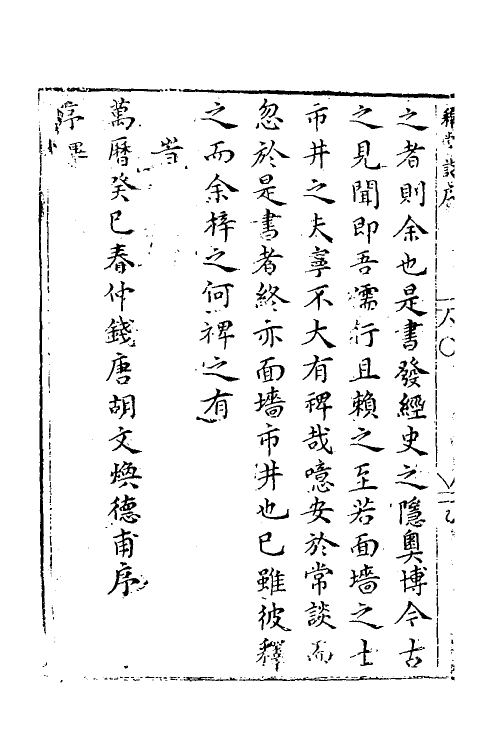 釋常談序
之者則余也是書發經史之隱奧博今古
之見聞即吾儒行且賴之至若面墻之士
市井之夫寧不大有裨哉噫安於常談而
忽於是書者終亦面墻市井也已雖彼釋
之而余梓之何裨之有
旹
萬曆癸巳春仲錢唐胡文煥德甫序
序畢